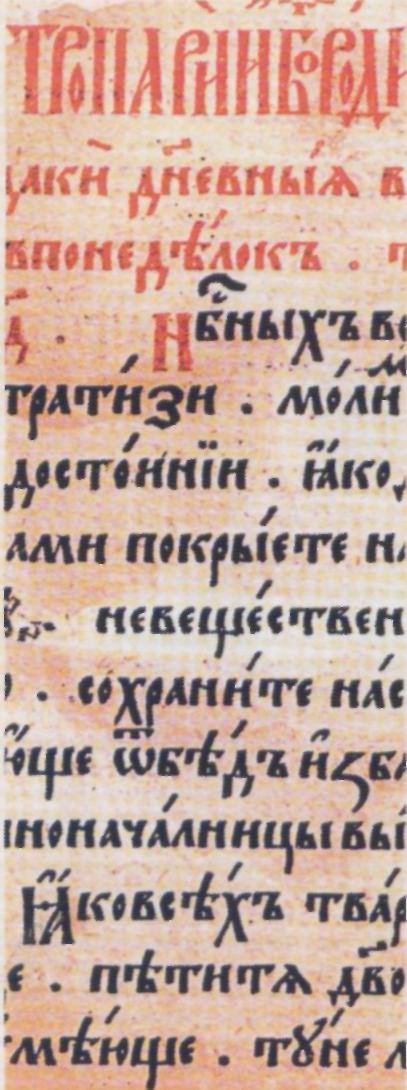 ТРОПАРИИБОРОДИ
ꙗки́ дн҃евныѧ в
впонедѣ́локъ . т
д҃ . Нб҃ныхъ во
трати́зи . мо́лим
досто́инїи . ꙗ҆́ко
ами покры́ете на
невеще́ствен
. сохрани́те на́с
ю́ще ѿбѣ́дъ и҆зба
иноначалницы вы́
Ꙗ҆́ковсѣ́хъ тва́р
е . пѣ́титѧ дв҃о
мѣ́юще . тꙋ́не